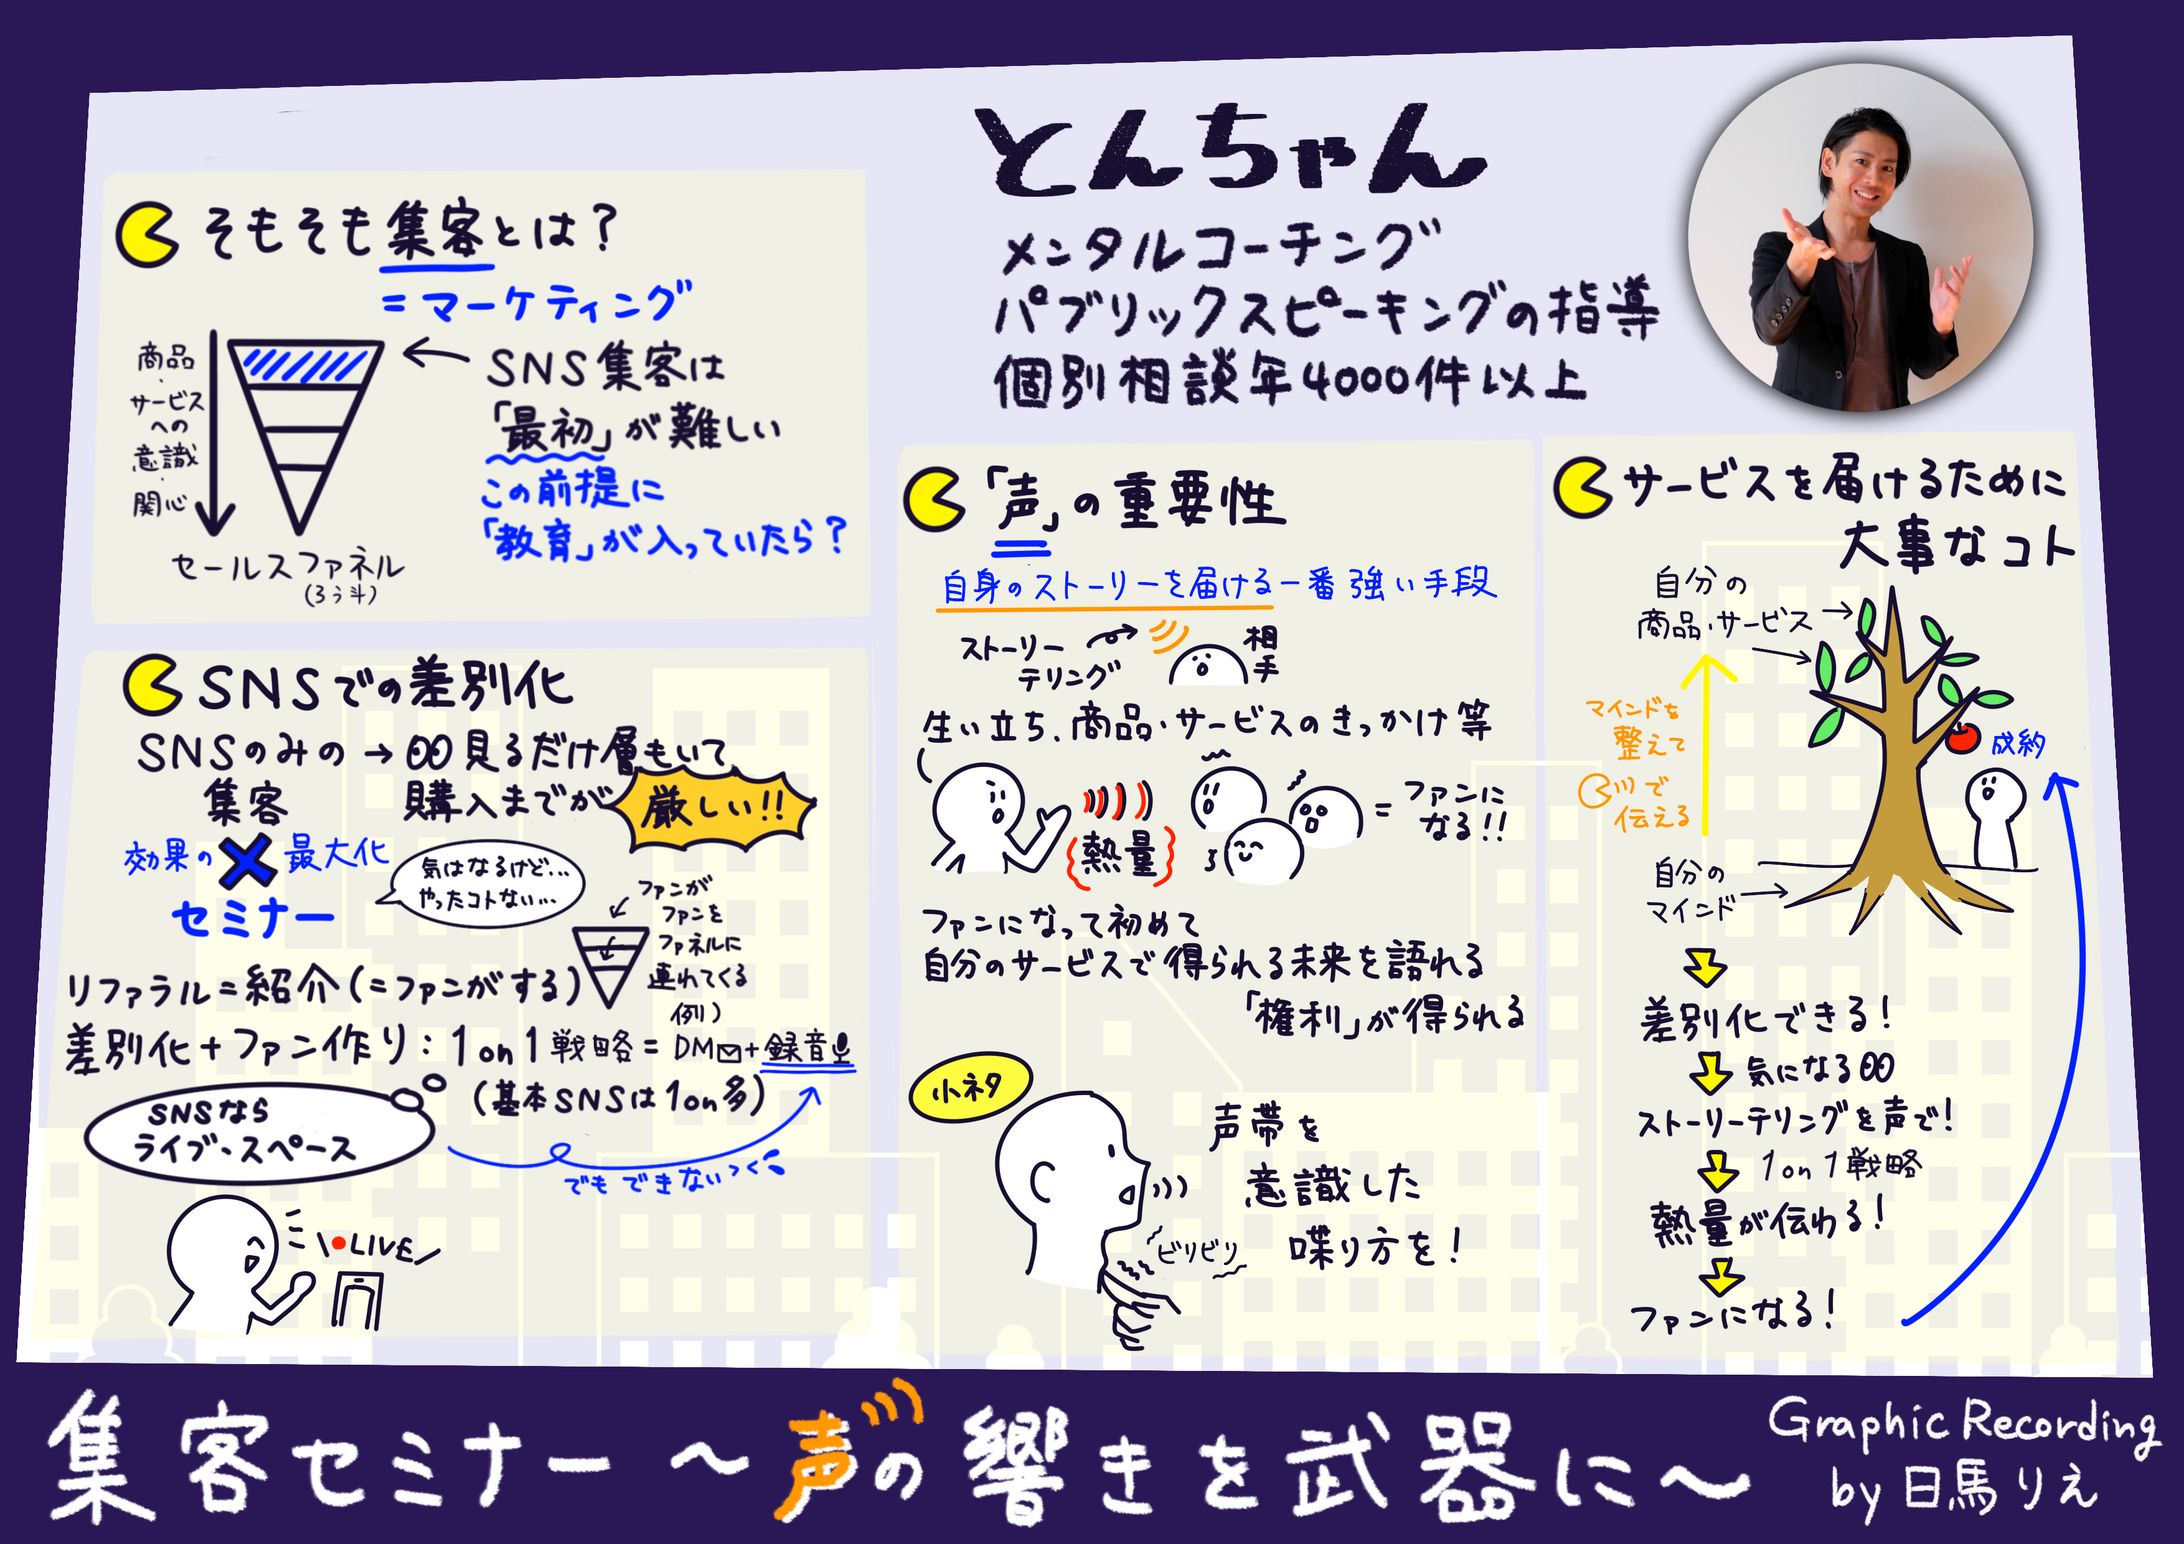 とんちゃん
メンタルコーチング
パブリックスピーキングの指導
個別相談年4000件以上
そもそも集客とは?
=マーケティング
商品・サービスへの意識・関心
セールスファネル
(ろう斗)
SNS集客は
「最初」が難しい
この前提に
「教育」が入っていたら?
SNSでの差別化
SNSのみの→見るだけ層もいて
集客
購入までが
厳しい!!
効果の×最大化
セミナー
気はなるけど…
やったコトない…
ファンが
ファンを
ファネルに
連れてくる
リファラル=紹介(=ファンがする)
例)
差別化+ファン作り:1on1戦略=DM+録音
(基本SNSは1on多)
SNSなら
ライブ・スペース
でもできないっく
LIVE
「声」の重要性
自身のストーリーを届ける一番強い手段
ストーリー
テリング
相手
生い立ち、商品・サービスのきっかけ等
熱量
=ファンに
なる!!
ファンになって初めて
自分のサービスで得られる未来を語れる
「権利」が得られる
小ネタ
声帯を
意識した
喋り方を!
ビリビリ
サービスを届けるために
大事なコト
自分の
商品・サービス
マインドを
整えて
で
伝える
成約
自分の
マインド
差別化できる!
気になる
ストーリーテリングを声で!
1on1戦略
熱量が伝わる!
ファンになる!
集客セミナー~声の響きを武器に~
Graphic Recording
by 日馬りえ